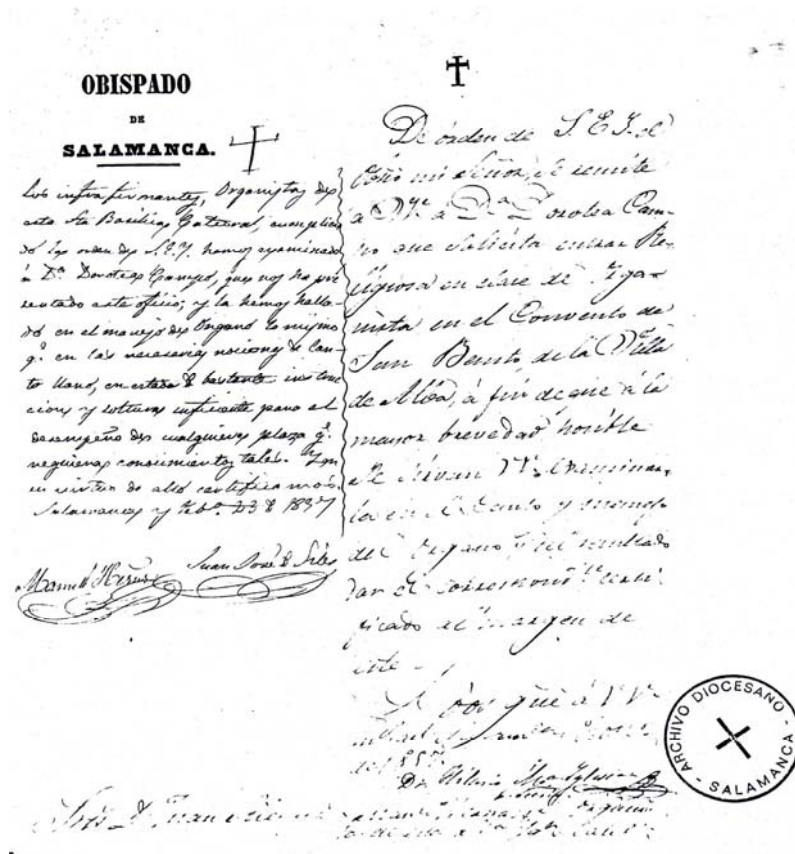 OBISPADO
DE
SALAMANCA.
Los infrafirmantes, Organistas de
esta Sta Basílica Catedral, cumplien
do la orden de S.E.Y. hemos examinado
á Dª. Dorotea Campo, que nos ha pre
sentado este oficio; y la hemos halla-
do en el manejo de Organo lo mismo
q.e en las necesarias nociones de Can-
to llano, en estado de bastante instruc
cion y soltura suficiente para el
desempeño de cualquiera plaza q.e
requiera conocimientos tales. Y en
en virtud de ello certificamos.
Salamanca y Feb.o 23 de 1857
Juan José de
Manuel
De órden de S. E. I. el
Obpo mi Señor, se remite
á V. á Dª Dorotea Cam-
po que solicita entrar Re-
ligiosa en clase de Orga-
nista en el Convento de
San Benito de la Villa
de Alba, á fin de que á la
mayor brevedad posible
se sirvan VV. examinar-
la en el Canto y manejo
del Organo y del resultado
dar el certi-
ficado al margen de
este.
Dios güe á VV.
Dr. Iglesias
ARCHIVO DIOCESANO - SALAMANCA -